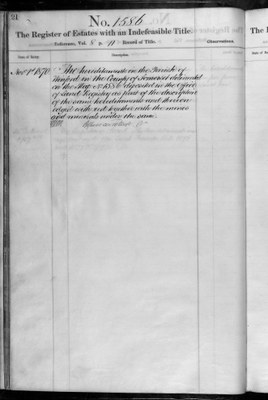 21
No. 1586
The Register of Estates with an Indefeasible Title.
Reference, Vol. 5 p. 11 Record of Title.
Observations.
Date of Entry.
Description.
Novr 1st 1870
The hereditaments in the Parish of
in the County of Somerset
in the Map No 1586 deposited in the Office
of Land Registry as part of the description
of the same hereditaments and thereon
edged with red together with the mines
and minerals under the same
The